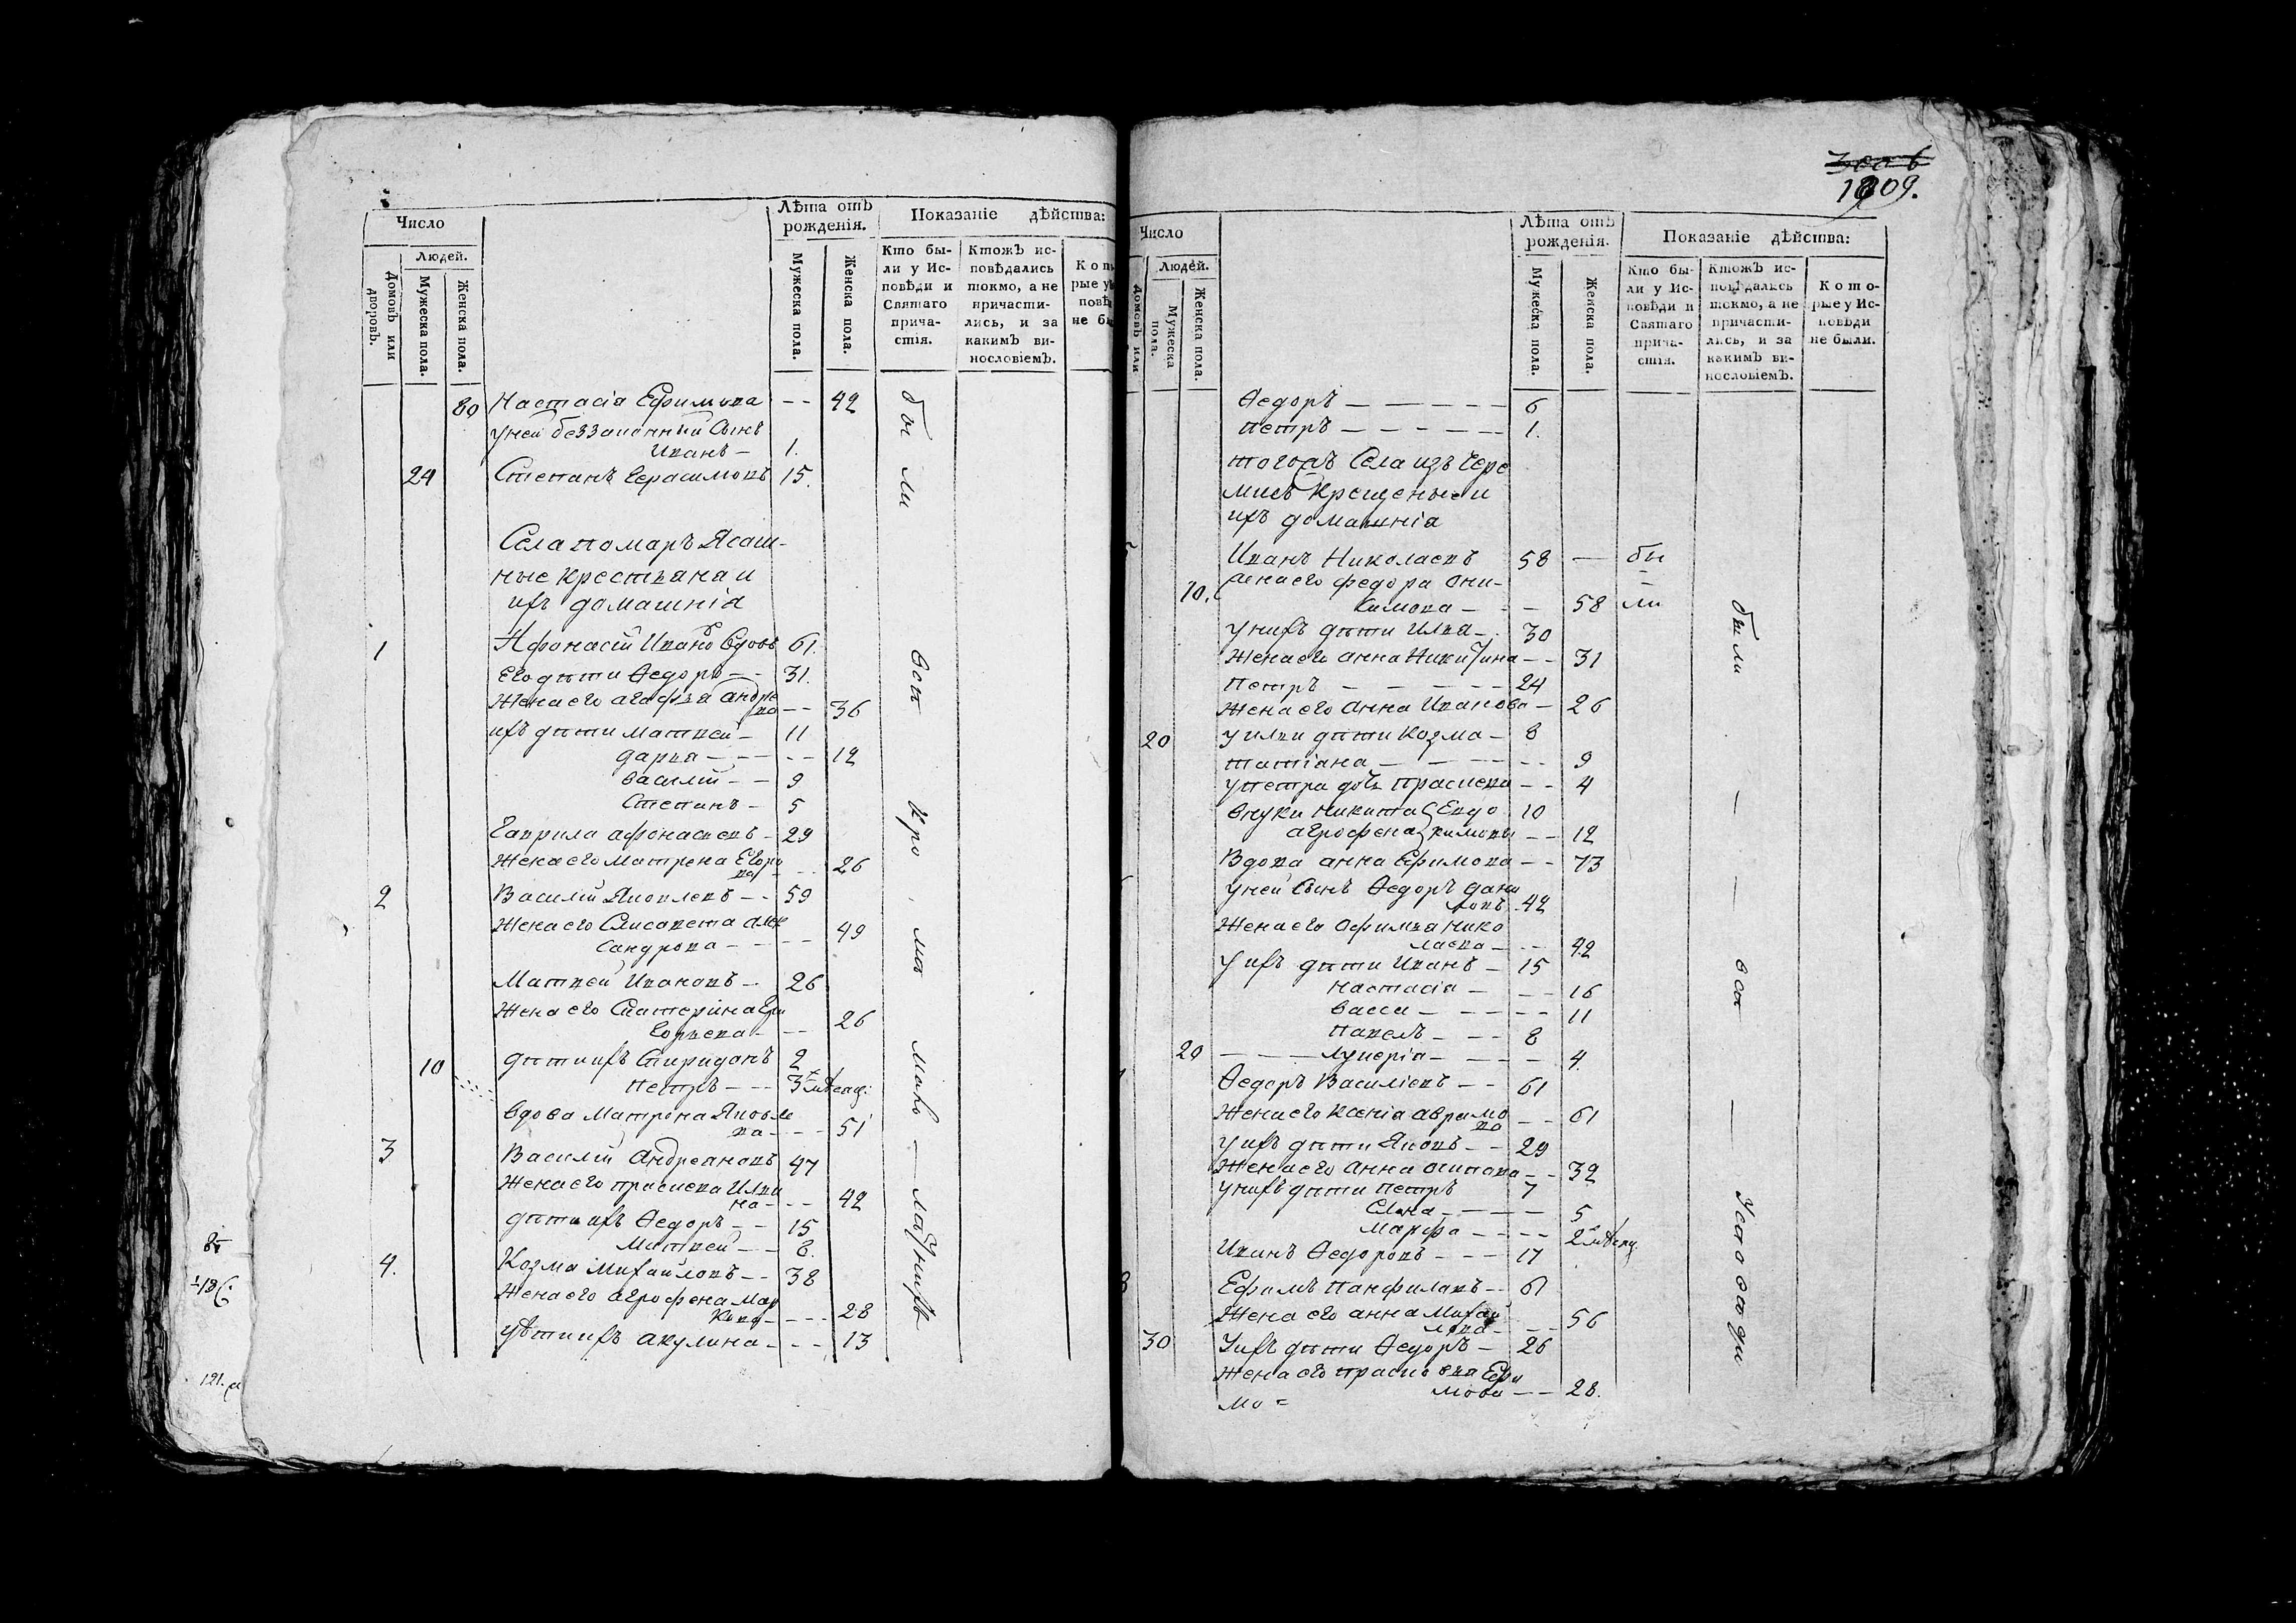 Число
Лѣта отъ рожденія.
Показаніе дѣйства:
Людей.
Домовъ или дворовъ.
Мужеска пола.
Женска пола.
Мужеска пола.
Женска пола.
Кто были у Исповѣди и Святаго причастія.
Ктожъ исповѣдались токмо, а не причастились, и за какимъ винословіемъ.
80 Настасія Ефимова -- 42
уней беззаконный Сынъ
Иванъ — 1.
24 Степанъ Герасимовъ 15.
Села помаръ Ясаш-
ные крестьяна и
ихъ домашнія
1 Афонасій Ивано Вдовъ 61.
Его дѣти Ѳедоръ — 31.
Жена его агафья андре
ва -- 36
ихъ дѣти Матвей — 11
дарья — — — -- 12
василій — — 9
Степанъ — 5
Гаврила афонасьевъ — 29
Жена его Матрена Егоро
ва — -- 26
2 Василій Яковлевъ — - 59
Жена его Елисавета алек
сандрова — — -- 49
Матвей Ивановъ — 26
Жена его Екатерина Гри
горьева — -- 26
10 дѣти ихъ Спиридонъ 2
Петръ — — 3 мѣсяц:
вдова Матрена Яковле
ва — -- 51
3 Василій Андреановъ 47
Жена его прасковья Ильи
на — -- 42
дѣти ихъ Ѳедоръ — — 15
Матвей — — 8.
4. Козма Михайловъ — - 38
Жена его агрофена Мар
кова — --- 28
дѣти ихъ акулина — - - 13
бы ли
вси
кро ма
мало — лѣтнихъ
121.
1809.
Число
Лѣта отъ рожденія.
Показаніе дѣйства:
Людей.
Домовъ или
Мужеска пола.
Женска пола.
Мужеска пола.
Женска пола.
Кто были у Исповѣди и Святаго причастія.
Ктожъ исповѣдались токмо, а не причастились, и за какимъ винословіемъ.
Которые у Исповѣди не были.
Ѳедоръ — — — — — 6
Петръ — — — — — 1.
тогожъ Села изъ Чере
мисъ Крещеные и
ихъ домашнія
Иванъ Николаевъ 58 — бы
10. Жена его федора они-
симова — - — 58 ли
унихъ дѣти Илья — 30
Жена его анна Никитина -- 31
Петръ — — — — — 24
Жена его анна Иванова — 26
20 у ильи дѣти Козма — 8
татіана — — — - - 9
упетра дочь прасковья - - 4
внуки никита Евдо 10
агрофена кимовы -- 12
Вдова анна Ефимова -- 73
уней Сынъ Ѳедоръ дани
ловъ 42
Жена его Офимья нико
лаева — -- 42
у ихъ дѣти Иванъ — 15
настасія — -- 16
васса — — — — 11
павелъ — — — 8
20 — — — лукерія — — — — 4.
Ѳедоръ Василіевъ — — 61
Жена его ксенія аврамо
ва -- 61
у ихъ дѣти Яковъ — — 29
Жена его анна осипова — - 32
унихъ дѣти петръ 7
Елена — — — — 5
Марфа — — — — 2 мѣсяц.
Иванъ Ѳедоровъ — — — 17
Ефимъ Панфиловъ — - 61
Жена его анна михай
лова — -- 56
30 У ихъ дѣти Ѳедоръ — 26
Жена его прасковья Ефи
мова -- 28.
бы ли
— — вси —